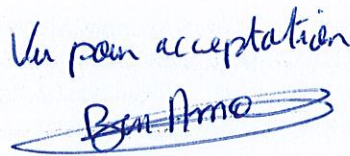 Vu pour acceptation
Ben Amo